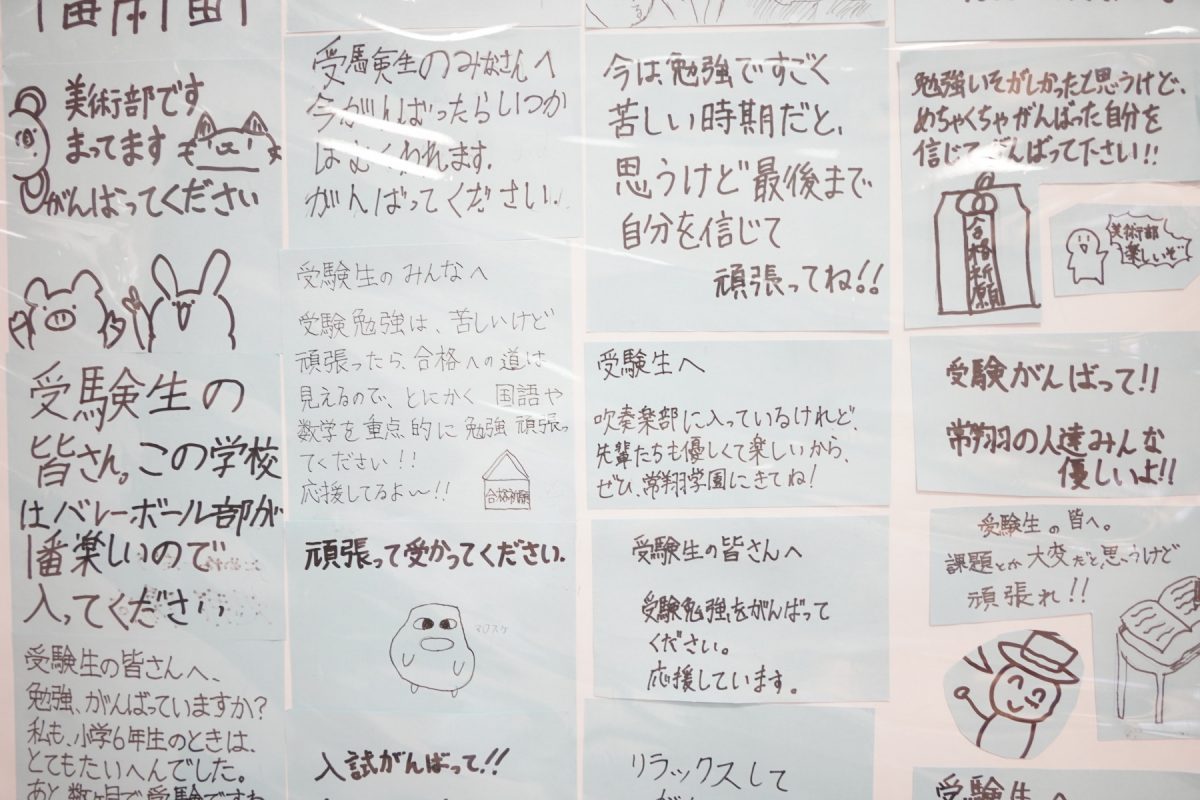 美術部です
まってます
がんばってください
受験生の
皆さん。この学校
はバレーボール部が
1番楽しいので
入ってください
受験生の皆さんへ、
勉強、がんばっていますか?
私も、小学6年生のときは、
とてもたいへんでした。
あと数ヶ月で受験ですね
受験生のみなさんへ
今がんばったらいつか
はむくわれます.
がんばってください.
受験生のみんなへ
受験勉強は、苦しいけど
頑張ったら、合格への道は
見えるので、とにかく国語や
数学を重点的に勉強頑張っ
てください!!
応援してるよ〜!!
合格祈願
頑張って受かってください.
マロスケ
入試がんばって!!
今は勉強ですごく
苦しい時期だと、
思うけど最後まで
自分を信じて
頑張ってね!!
受験生へ
吹奏楽部に入っているけれど、
先輩たちも優しくて楽しいから、
ぜひ、常翔学園にきてね!
受験生の皆さんへ
受験勉強をがんばって
ください。
応援しています。
リラックスして
勉強いそがしかったと思うけど、
めちゃくちゃがんばった自分を
信じてがんばって下さい!!
合格祈願
美術部
楽しいぞ
受験がんばって!!
常翔の人達みんな
優しいよ!!
受験生の皆へ。
課題とか大変だと思うけど
頑張れ!!
受験生へ